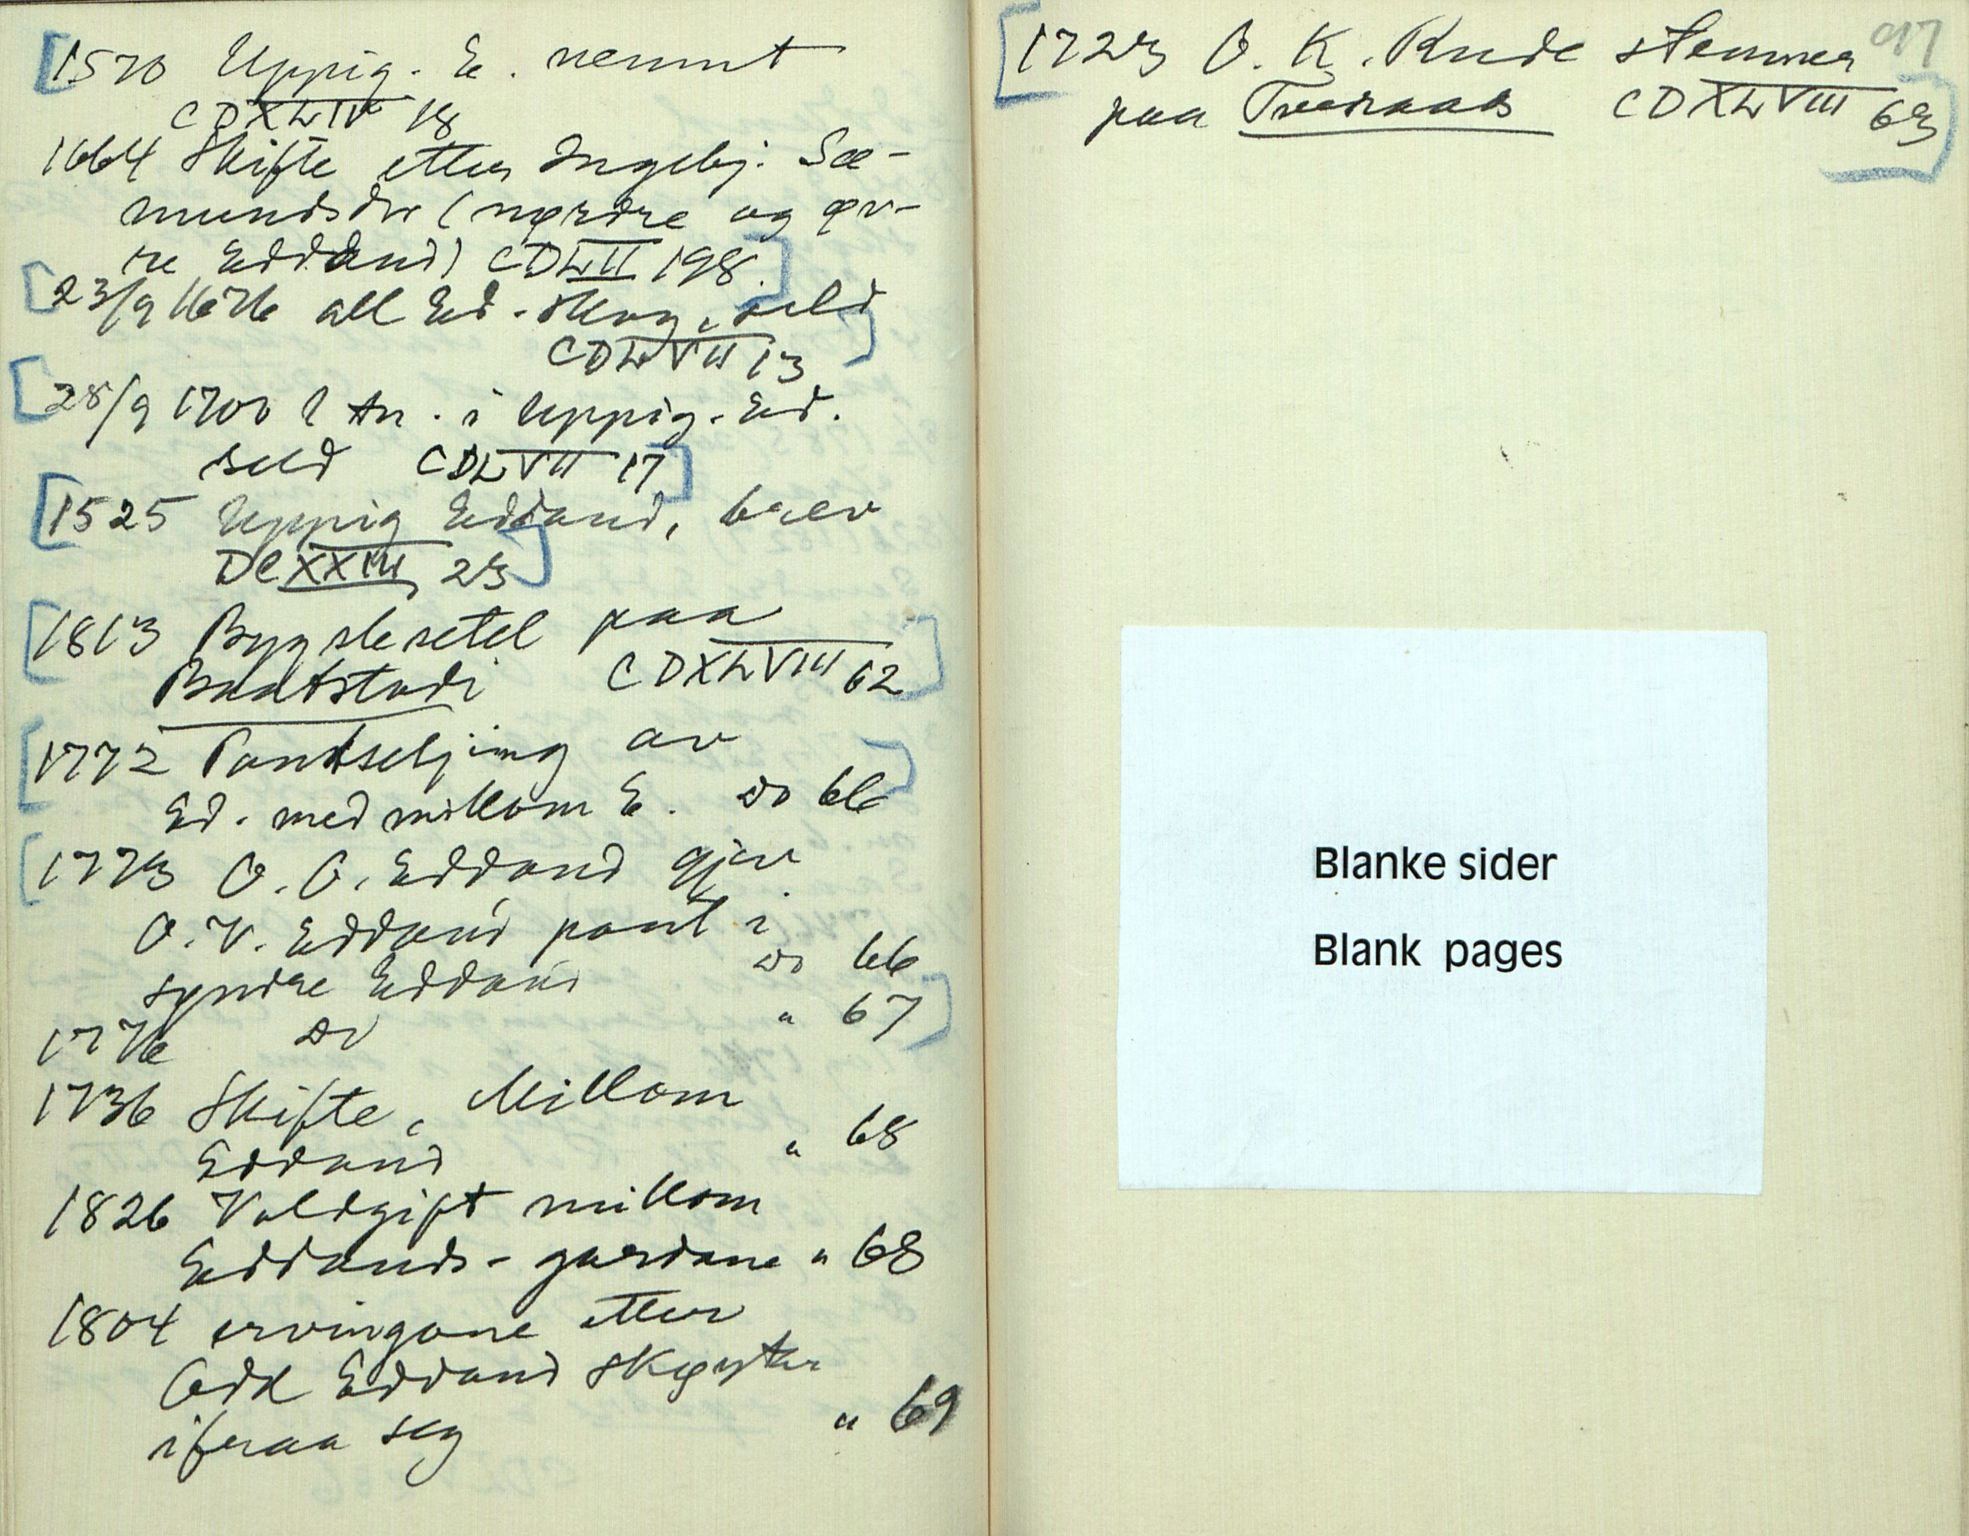 [1570 Uppig. E. nemnt
CDXLIV 18
1664 Skifte etter Ingebj. Sæ-
mundsdtr (nørdre og øv-
re Eddand) CDLII 198.]
[23/9 1676 all Ed. skog, seld
CDLVII 13]
[28/9 1700 l tn. i Uppig. Ed.
seld CDLVII 17]
[1525 Uppig Eddand, brev
DCXXIII 23]
[1813 Bygslesetel paa
Baatstodi CDXLVIII 62]
[1772 Pantseljing av
Ed. med millom E. do 66]
[1773 O. O. Eddand gjev
O. V. Eddand pant i
syndre Eddand do 66
1776 do " 67]
1736 Skifte, Millom
Eddand " 68
1826 Voldgift millom
Eddands-gardane " 68
1804 ervingane etter
Odd Eddand skøyter
ifraa seg " 69
97
[1723 O. K. Rude stemner
paa Tveraaes CDXLVIII 63]
Blanke sider
Blank pages